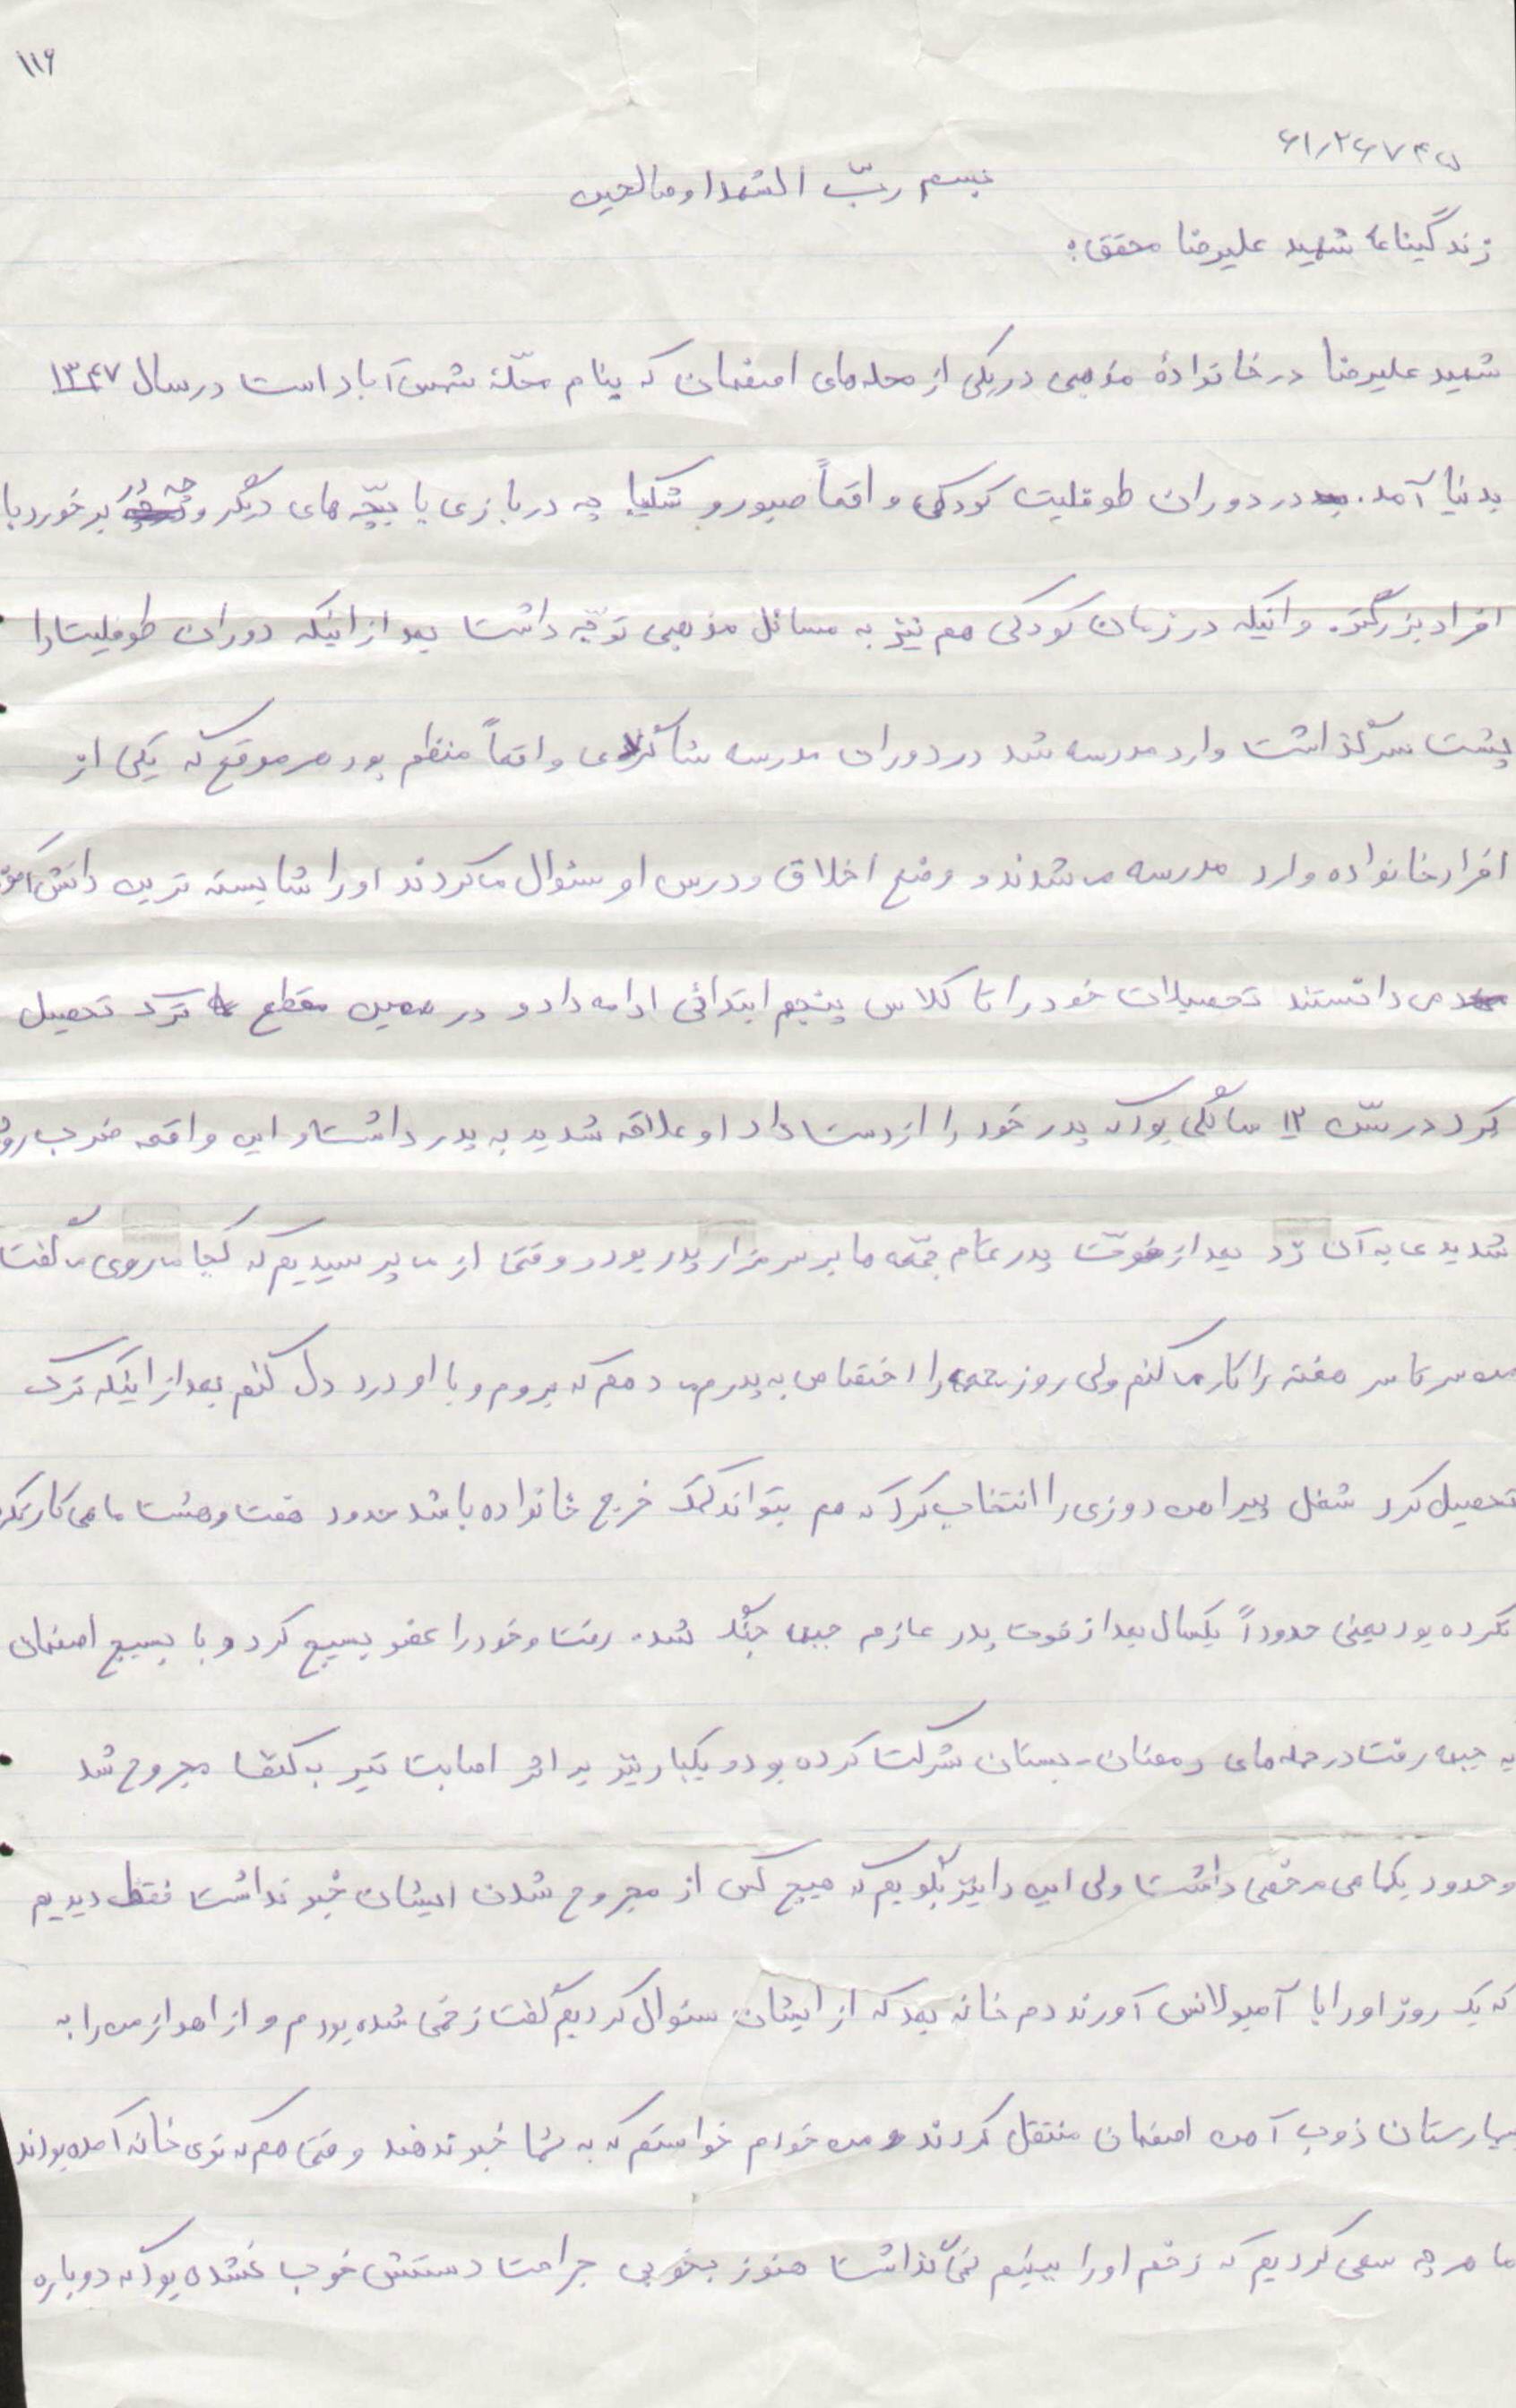 ۱۱۶
۶۱٫۲۶۷۴۵
بسم ربّ الشهدا و صالحین
زندگینامهٔ شهید علیرضا محقق:
شهید علیرضا در خانوادهٔ مذهبی در یکی از محله‌های اصفهان که بنام محلّهٔ شمس‌آباد است در سال ۱۳۴۷
بدنیا آمد. در دوران طوفلیت کودکی واقعاً صبور و شکیبا چه در بازی با بچّه‌های دیگر و چه در برخورد با
افراد بزرگتر. و اینکه در زمان کودکی هم نیز به مسائل مذهبی توجّه داشت بعد از اینکه دوران طوفلیت را
پشت سر گذاشت وارد مدرسه شد در دوران مدرسه شاگردی واقعاً منظم بود هر موقع که یکی از
افراد خانواده وارد مدرسه می‌شدند و وضع اخلاق و درس او سئوال می‌کردند او را شایسته‌ترین دانش‌آموز
می‌دانستند تحصیلات خود را تا کلاس پنجم ابتدائی ادامه داد و در همین مقطع ترک تحصیل
کرد در سنّ ۱۳ سالگی بود که پدر خود را از دست داد او علاقه شدید به پدر داشت و این واقعه ضرب روحی
شدیدی به آن زد بعد از فوت پدر تمام جمّعه‌ها بر سر مزار پدر بود و وقتی از می‌پرسیدیم که کجا می‌روی می‌گفت
من سرتاسر هفته را کار می‌کنم ولی روز جمعه را اختصاص به پدرم می‌دهم که بروم و با او درد دل کنم بعد از اینکه ترک
تحصیل کرد شغل پیراهن‌دوزی را انتخاب کرد که هم بتواند کمک خرج خانواده باشد حدود هفت و هشت ماهی کار نکرد
نکرده بود یعنی حدوداً یکسال بعد از فوت پدر عازم جبهه جنگ شد. رفت و خود را عضو بسیج کرد و با بسیج اصفهان
به جبهه رفت در حمله‌های رمضان-بستان شرکت کرده بود و یکبار نیز بر اثر اصابت تیر به کتفش مجروح شد
و حدود یکماهی مرخصی داشت ولی این را نیز بگویم که هیچ کس از مجروح شدن ایشان خبر نداشت فقط دیدیم
که یک روز او را با آمبولانس آورند دم خانه بعد که از ایشان سئوال کردیم گفت زخمی شده بودم و از اهواز من را به
بیمارستان ذوب آهن اصفهان منتقل کردند و من خودم خواستم که به شما خبر ندهند وقتی هم که توی خانه آمده بودند
ما هر چه سعی کردیم که زخم او را ببینیم نمی‌گذاشت هنوز بخوبی جراحت دستش خوب نشده بود که دوباره